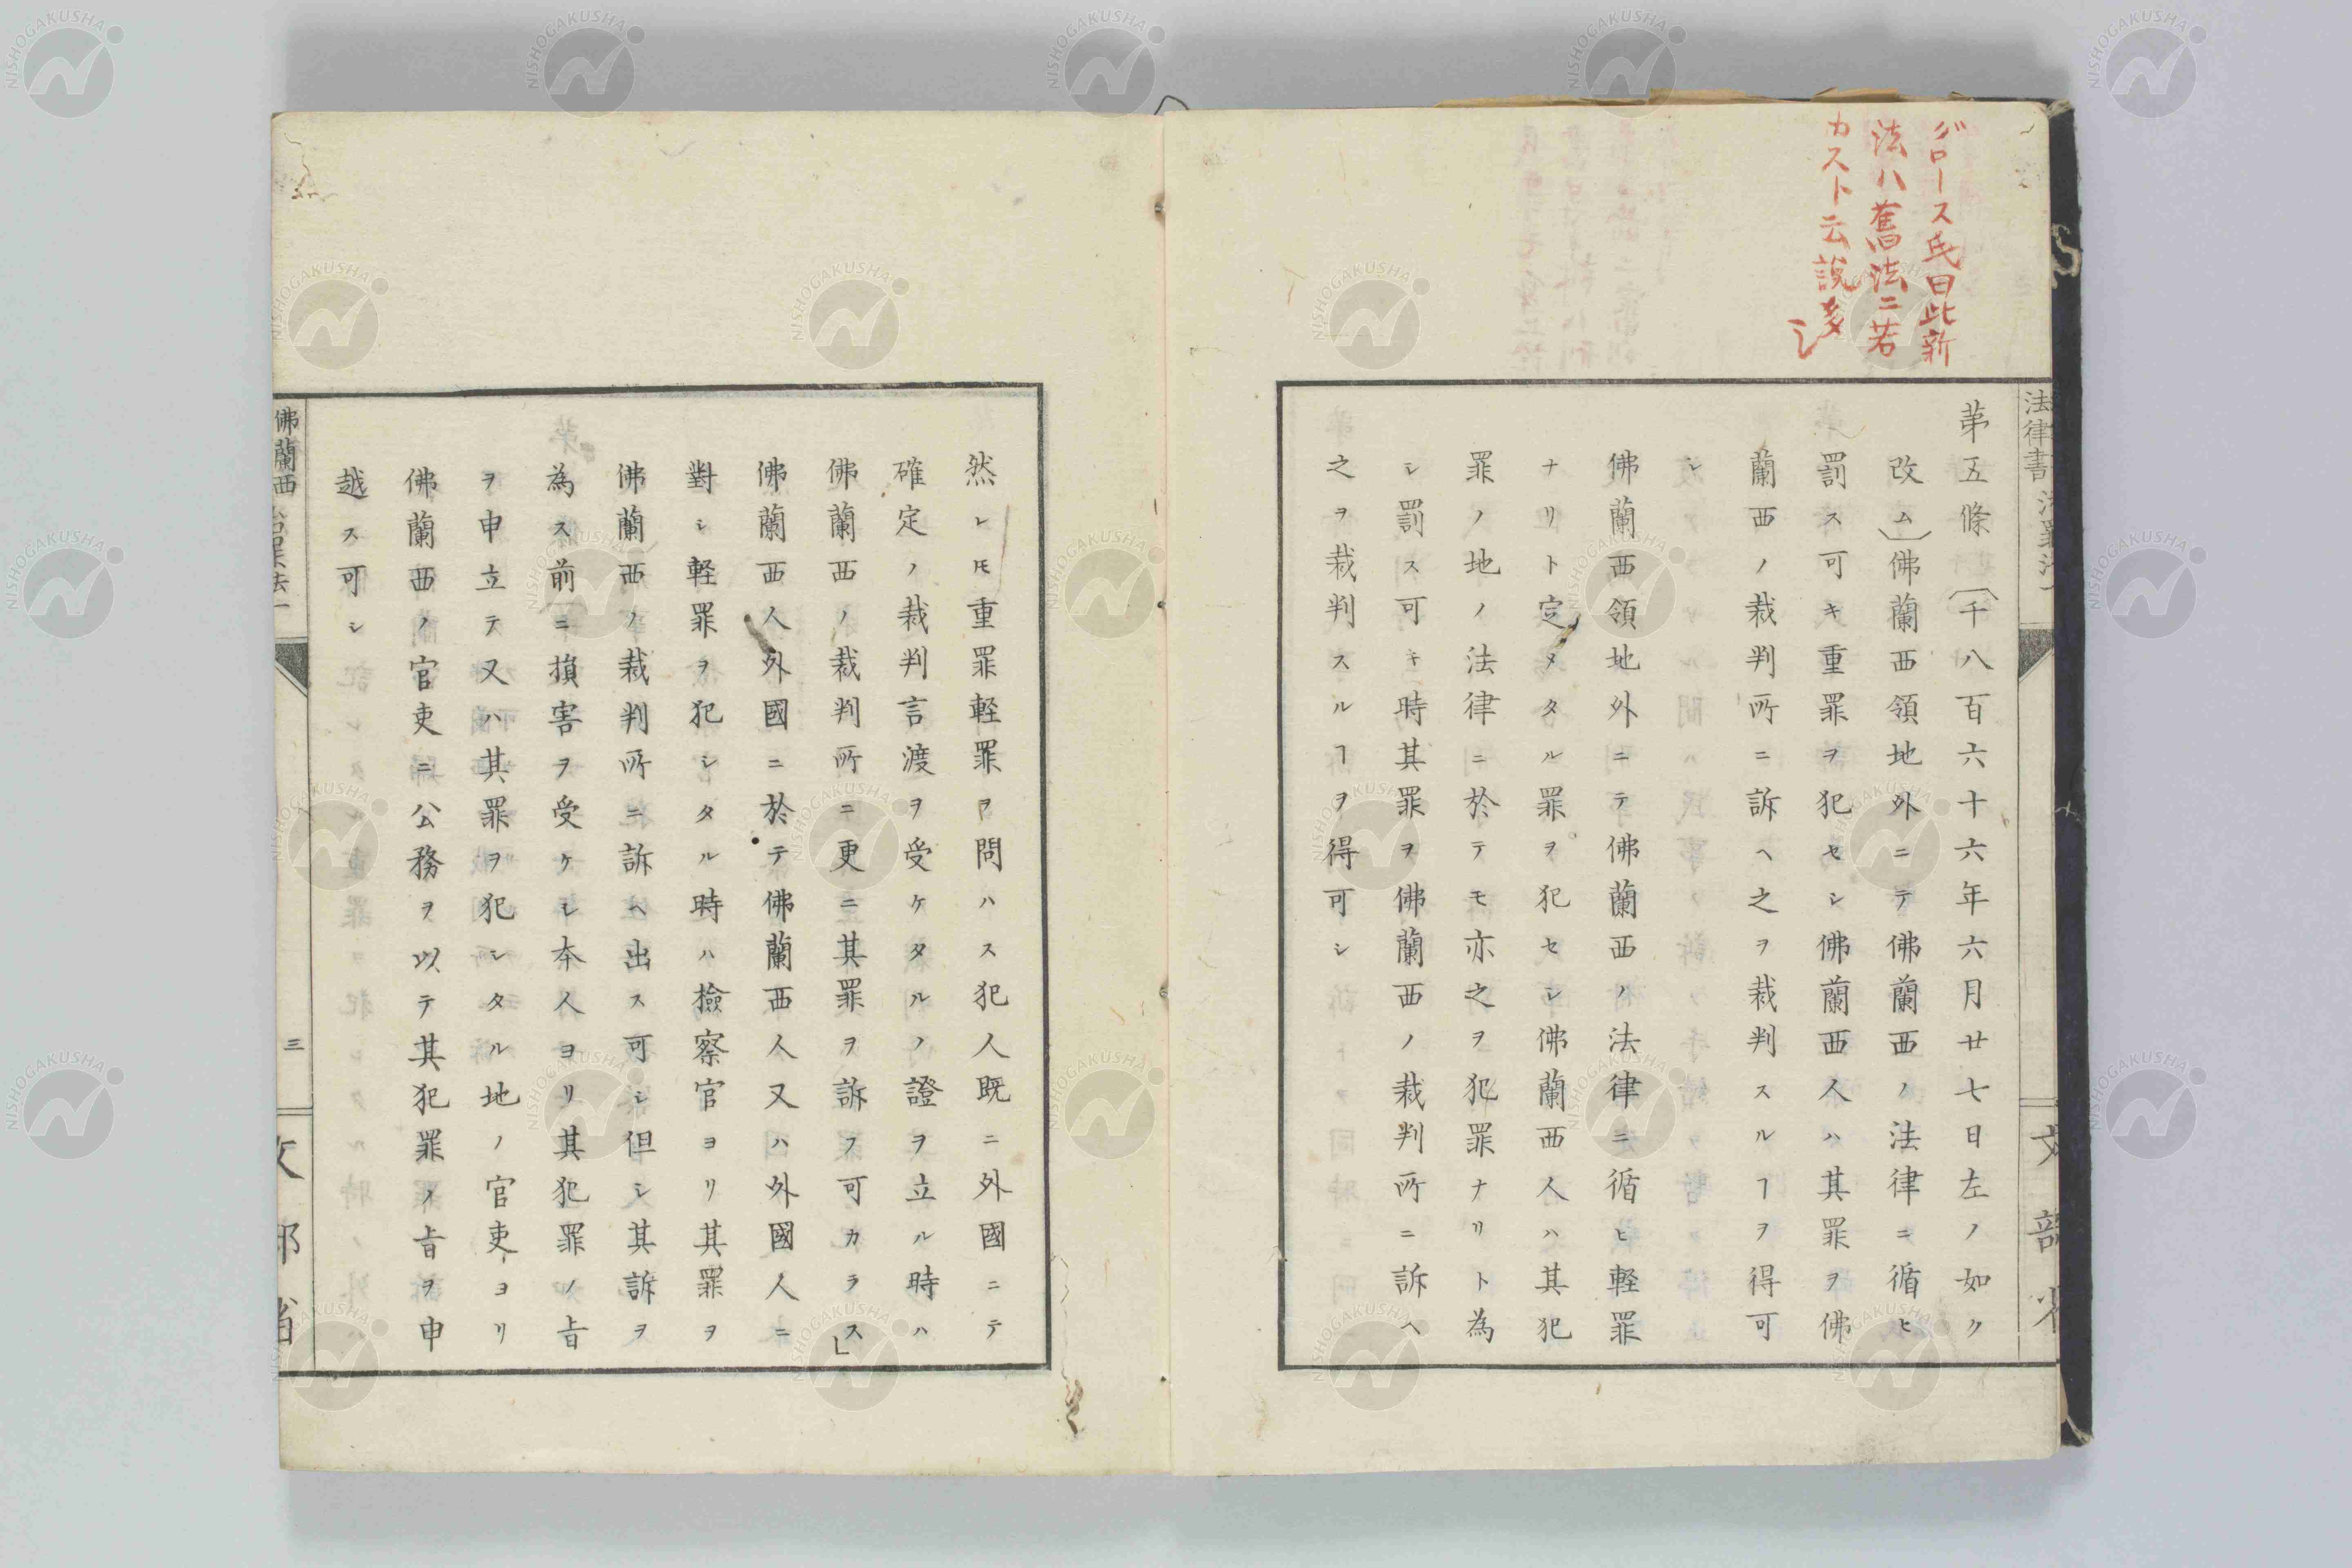 グロース氏曰此新
法ハ舊法ニ若
カスト云説多
シ
法律書
第五條（千八百六十六年六月廿七日左ノ如ク
改ム）佛蘭西領地外ニテ佛蘭西ノ法律ニ循ヒ
罰ス可キ重罪ヲ犯セシ佛蘭西人ハ其罪ヲ佛
蘭西ノ裁判所ニ訴ヘ之ヲ裁判スルヿヲ得可
シ
佛蘭西領地外ニテ佛蘭西ノ法律ニ循ヒ軽罪
ナリト定メタル罪ヲ犯セシ佛蘭西人ハ其犯
罪ノ地ノ法律ニ於テモ亦之ヲ犯罪ナリト為
シ罰ス可キ時其罪ヲ佛蘭西ノ裁判所ニ訴ヘ
之ヲ裁判スルヿヲ得可シ
然レ𪜈重罪軽罪ヲ問ハス犯人既ニ外國ニテ
確定ノ裁判言渡ヲ受ケタルノ證ヲ立ル時ハ
佛蘭西ノ裁判所ニ更ニ其罪ヲ訴フ可カラス」
佛蘭西人外國ニ於テ佛蘭西人又ハ外國人ニ
對シ軽罪ヲ犯シタル時ハ撿察官ヨリ其罪ヲ
佛蘭西ノ裁判所ニ訴ヘ出ス可シ但シ其訴ヲ
為ス前ニ損害ヲ受ケシ本人ヨリ其犯罪ノ旨
ヲ申立テ又ハ其罪ヲ犯シタル地ノ官吏ヨリ
佛蘭西ノ官吏ニ公務ヲ以テ其犯罪ノ旨ヲ申
越ス可シ
佛蘭西
三
文部省
NISHOGAKUSHA